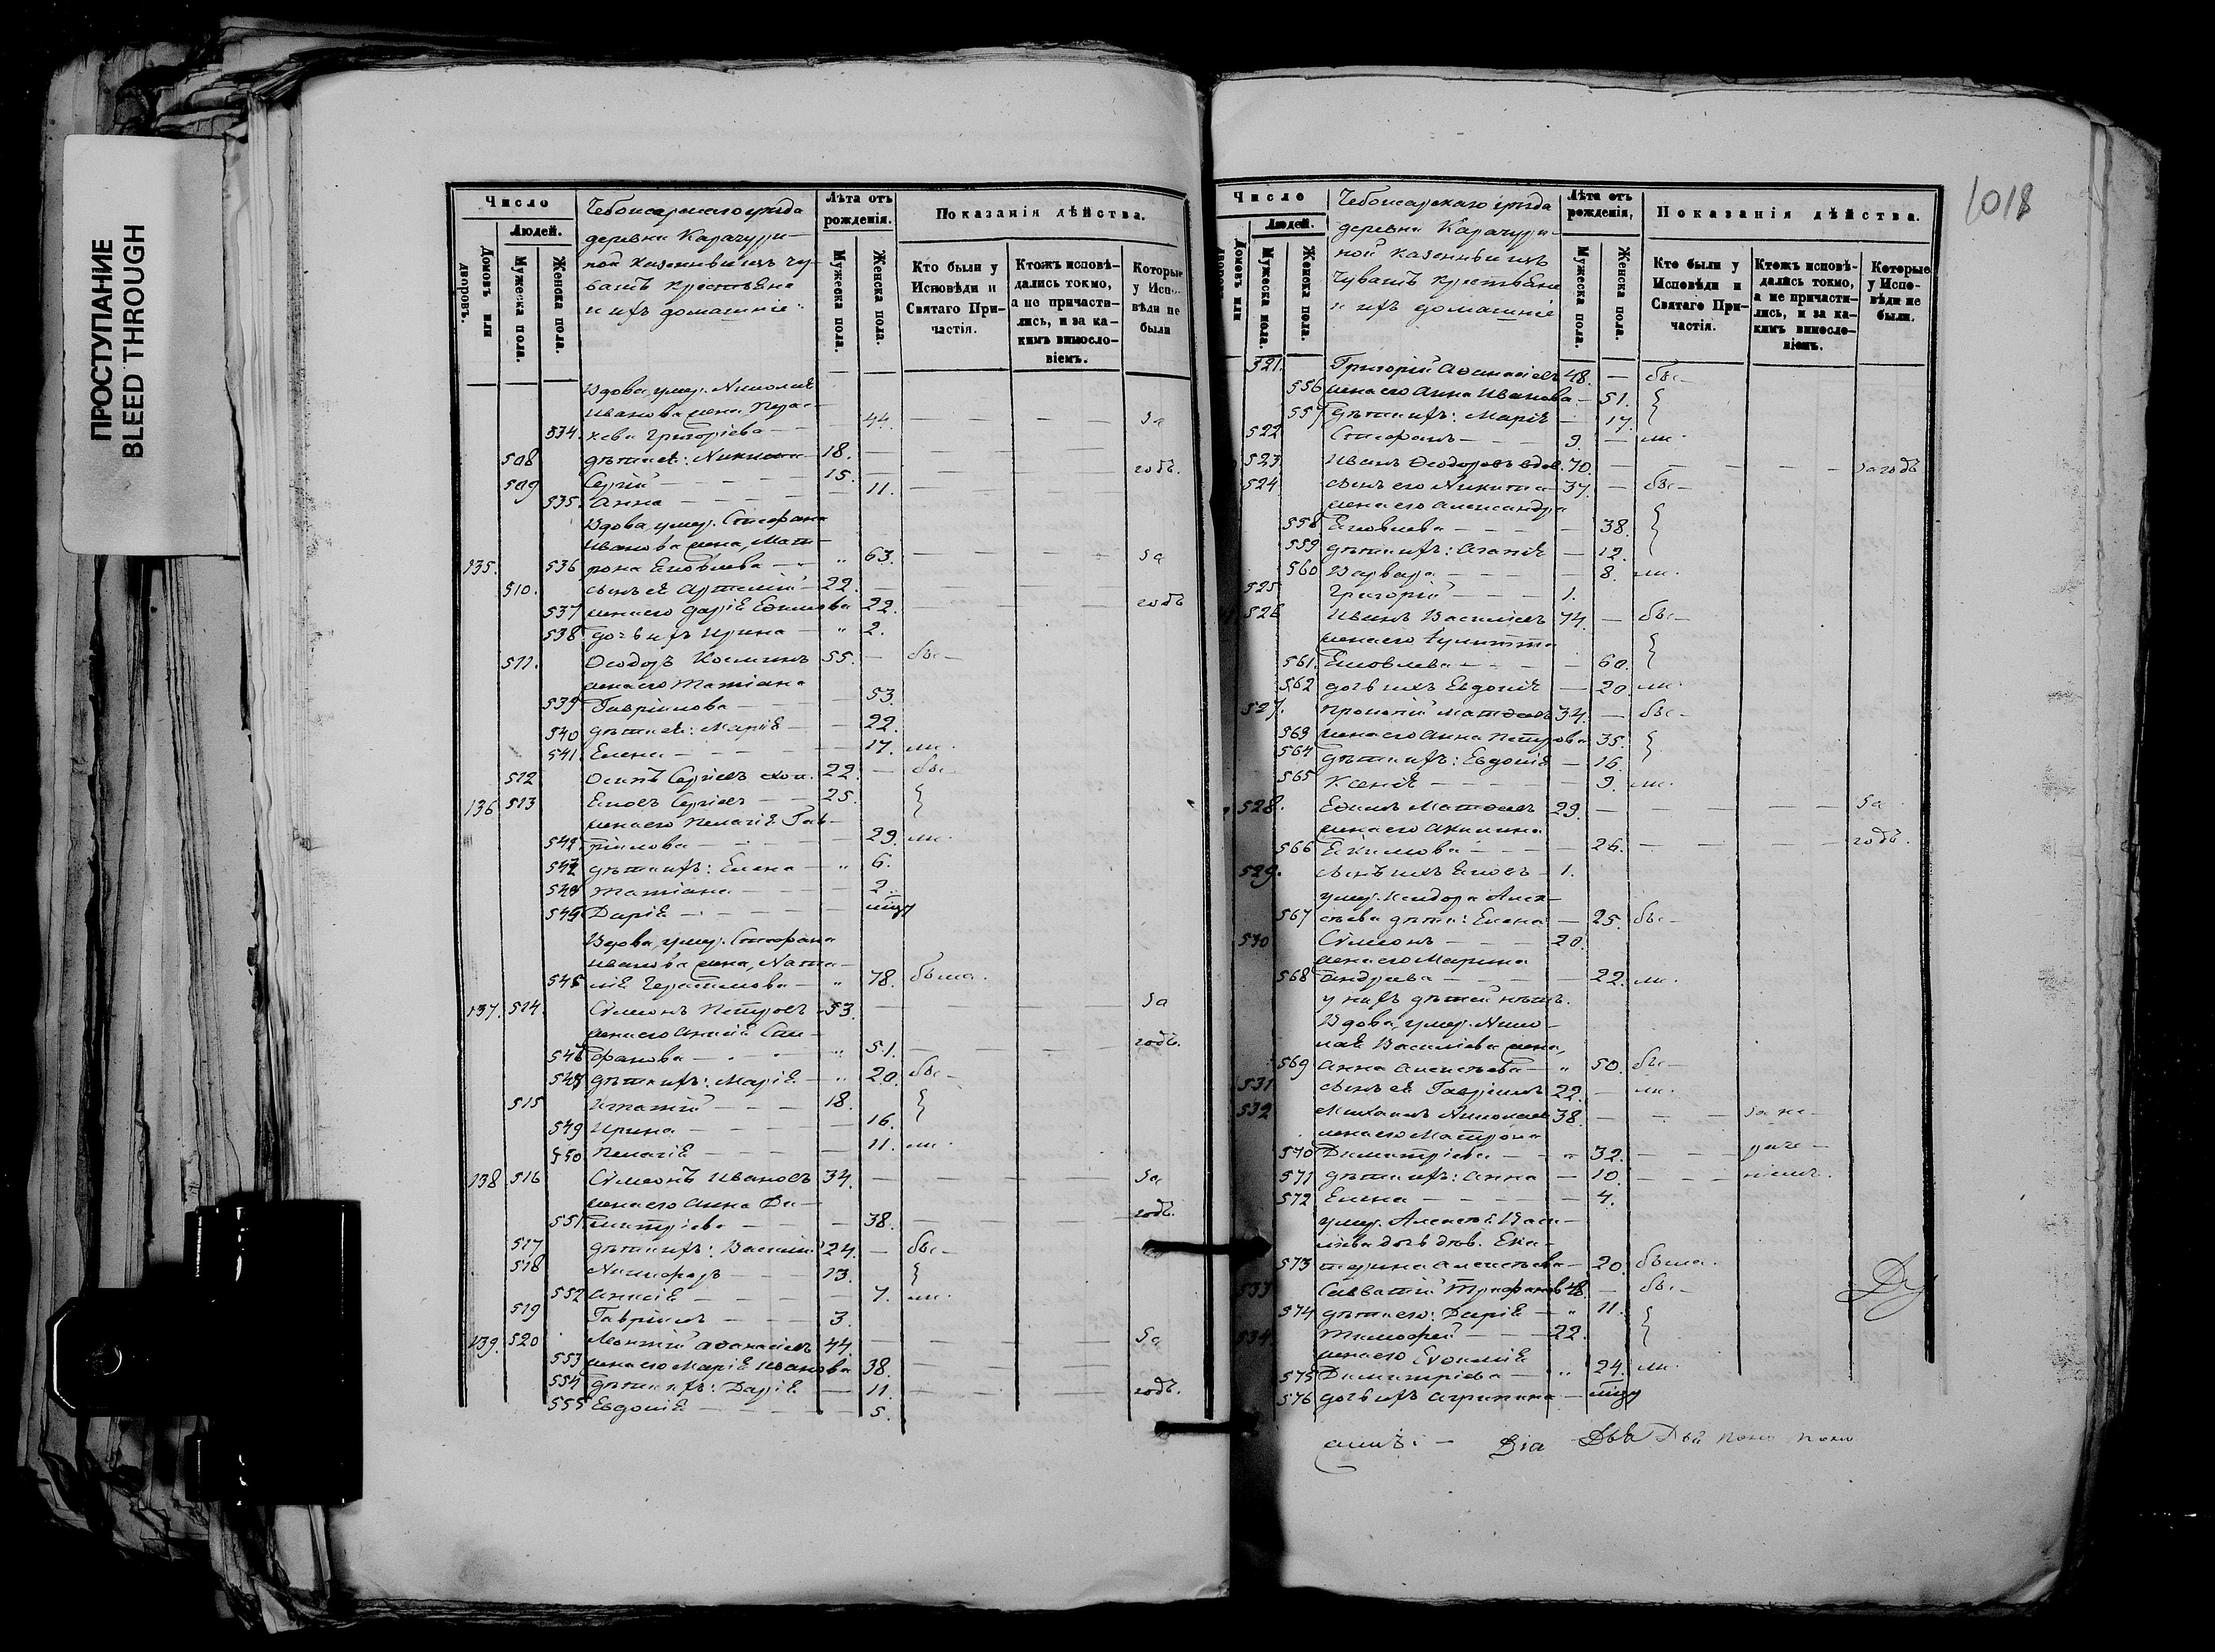 ПРОСТУПАНИЕ
BLEED THROUGH
Число
Людей.
Домовъ или дворовъ.
Мужеска пола.
Женска пола.
Чебоксарскаго уѣзда
деревни Карачури-
ной казенные изъ чу-
вашъ крестьяне
и ихъ домашніе:
Лѣта отъ рожденія.
Мужеска пола.
Женска пола.
Показанія дѣйства.
Кто были у Исповѣди и Святаго При-частія.
Ктожъ исповѣ-дались токмо, а не причасти-лись, и за ка-кимъ винословіемъ.
Которые у Испо-вѣди не были
Вдова, умер. Николая
Иванова жена, Пара-
534. кева Григоріева — 44. — за
508 дѣти ея: Никита — 18. —
509 Сергій — 15. — годъ.
535. Анна — 11. —
Вдова, умер. Стефана
Иванова жена, Мат-
135. 536 рона Яковлева — " 63. — за
510. сынъ ея Артемій — 22. —
537 жена его Дарія Ефимова 22. — годъ
538 дочь ихъ Ирина — " 2.
511. Ѳеодоръ Косминъ 55. — бы-
жена его Татіана
539 Гавріилова — 53.
540 дѣти ея: Марія — 22.
541. Елена — 17. ли.
512 Осипъ Сергіевъ хол. 22. — бы-
136 513 Яковъ Сергіевъ — 25.
жена его Пелагія Гав-
542. ріилова — 29. ли.
543 дѣти ихъ: Елена — " 6.
544 Татіана — 2.
545 Дарія —
Вдова, умер. Стефана
Иванова жена, Ната-
546 лія Герасимова — " 78. была.
137. 514. Сѵмеонъ Петровъ 53. — за
жена его Анисія Сте-
547 фанова — " 51. — годъ.
548 дѣти ихъ: Марія — " 20. бы-
515 Игнатій — 18.
549 Ирина — 16.
550 Пелагія — 11. ли.
138 516 Сѵмеонъ Ивановъ 34. — за
жена его Анна Ди-
551 митріева — 38. — годъ.
517 дѣти ихъ: Василій 24. — бы-
518 Никифоръ — 13.
552 Анисія — 7. ли.
519 Гавріилъ — 3.
139. 520 Леонтій Аѳанасіевъ 44. — за
553 жена его Марія Иванова 38. —
554 дѣти ихъ: Дарія — 11. — годъ.
555 Евдокія — 5.
1018
Число
Людей.
Домовъ или
Мужеска пола.
Женска пола.
Чебоксарскаго уѣзда
деревни Карачури-
ной казенные изъ
чувашъ крестьяне
и ихъ домашніе
Лѣта отъ рожденія,
Мужеска пола.
Женска пола.
Показанія дѣйства.
Кто были у Исповѣди и Святаго При-частія.
Ктожъ исповѣ-дались токмо, а не причасти-лись, и за ка-кимъ виносло-віемъ.
Которые у Испо-вѣди не были.
521. Григорій Аѳанасіевъ 48. — бы-
556 жена его Анна Иванова — 51.
557 дѣти ихъ: Марія — 17.
522 Стефанъ — 9. — ли.
523. Иванъ Ѳеодоровъ вдов. 70. — за годъ
524. сынъ его Никита — 37. — бы-
жена его Александра
558 Яковлева — 38.
559 дѣти ихъ: Агапія — 12.
560 Варвара — 8. ли.
525 Григорій — 1.
526 Иванъ Васильевъ 74. — бы-
жена его
561. Яковлева — 60.
562 дочь ихъ Евдокія — 20 ли.
527. Прокопій Матѳеевъ 34. — бы-
563 жена его Анна Петрова 35.
564 дѣти ихъ: Евдокія — 16.
565 Ксенія — 9. ли.
528. Ефимъ Матѳеевъ 29. — за
жена его Акилина
566 Екимова — 26. — годъ.
529. сынъ ихъ Яковъ — 1.
умер. Исидора Алек-
567 сѣева дѣти: Елена — 25. бы-
530 Сѵмеонъ — 20.
жена его Марина
568 Андреева — 22. ли.
у нихъ дѣтей нѣтъ.
Вдова, умер. Нико-
лая Васильева жена,
569 Анна Алексѣева — " 50. бы-
531 сынъ ея Гавріилъ 22. — ли.
532 Михаилъ Николаевъ 38. — за не-
жена его Матрона
570 Димитріева — " 32. — раче-
571 дѣти ихъ: Анна — 10. — ніемъ.
572 Елена — 4.
умер. Алексѣя Васи-
льева дочь дѣв. Ека-
573 терина Алексѣева — 20. была.
533 Савватій Трифоновъ 48. — бы-
574 дѣти его: Дарія — " 11.
534. Тимофей — 22.
жена его Евфимія
575 Димитріева — " 24. ли.
576 дочь ихъ Агрипина —